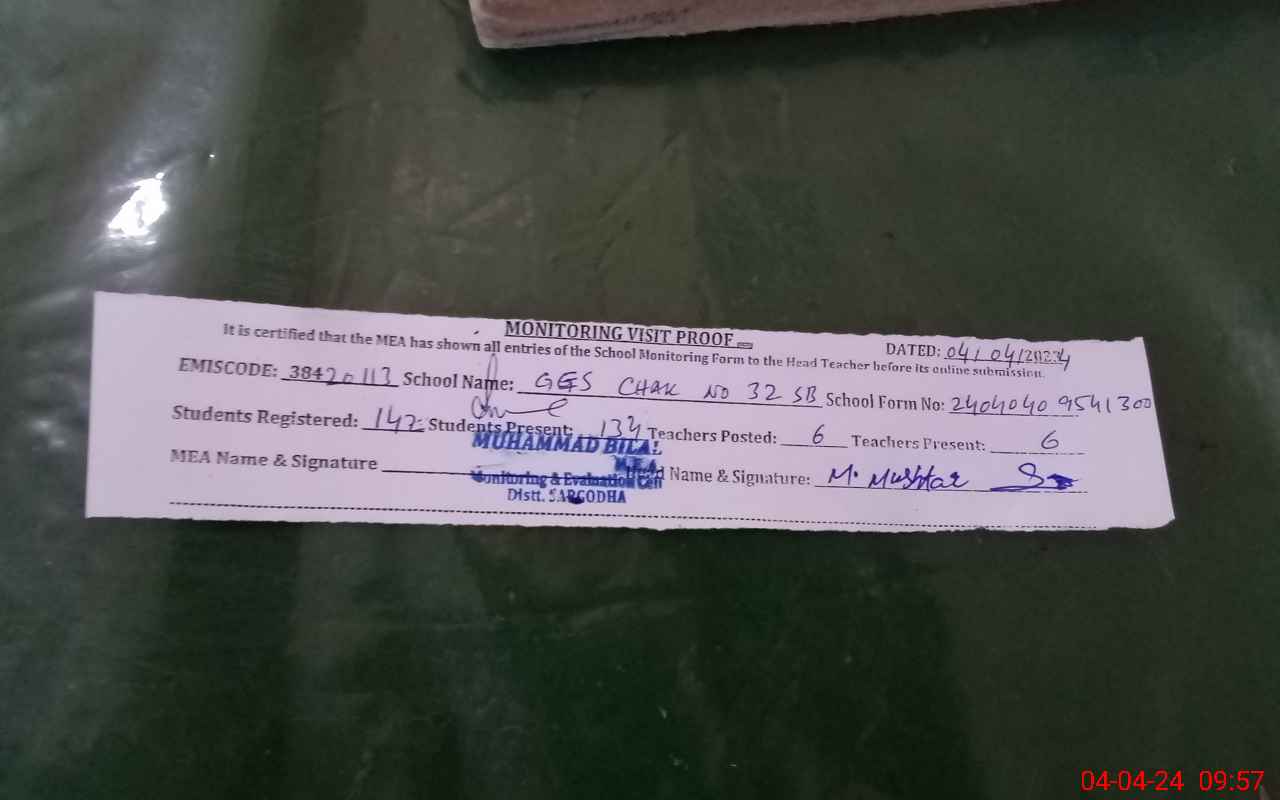 MONITORING VISIT PROOF
DATED: 04/04/2024
It is certified that the MEA has shown all entries of the School Monitoring Form to the Head Teacher before its online submission.
EMISCODE: 38420113 School Name: GES CHAK NO 32 SB School Form No: 24040409541300
Students Registered: 142 Students Present: 134 Teachers Posted: 6 Teachers Present: 6
MEA Name & Signature Head Name & Signature: M. Mushtaq
MUHAMMAD BILAL
MEA
Monitoring & Evaluation Cell
Distt. SARGODHA
04-04-24 09:57